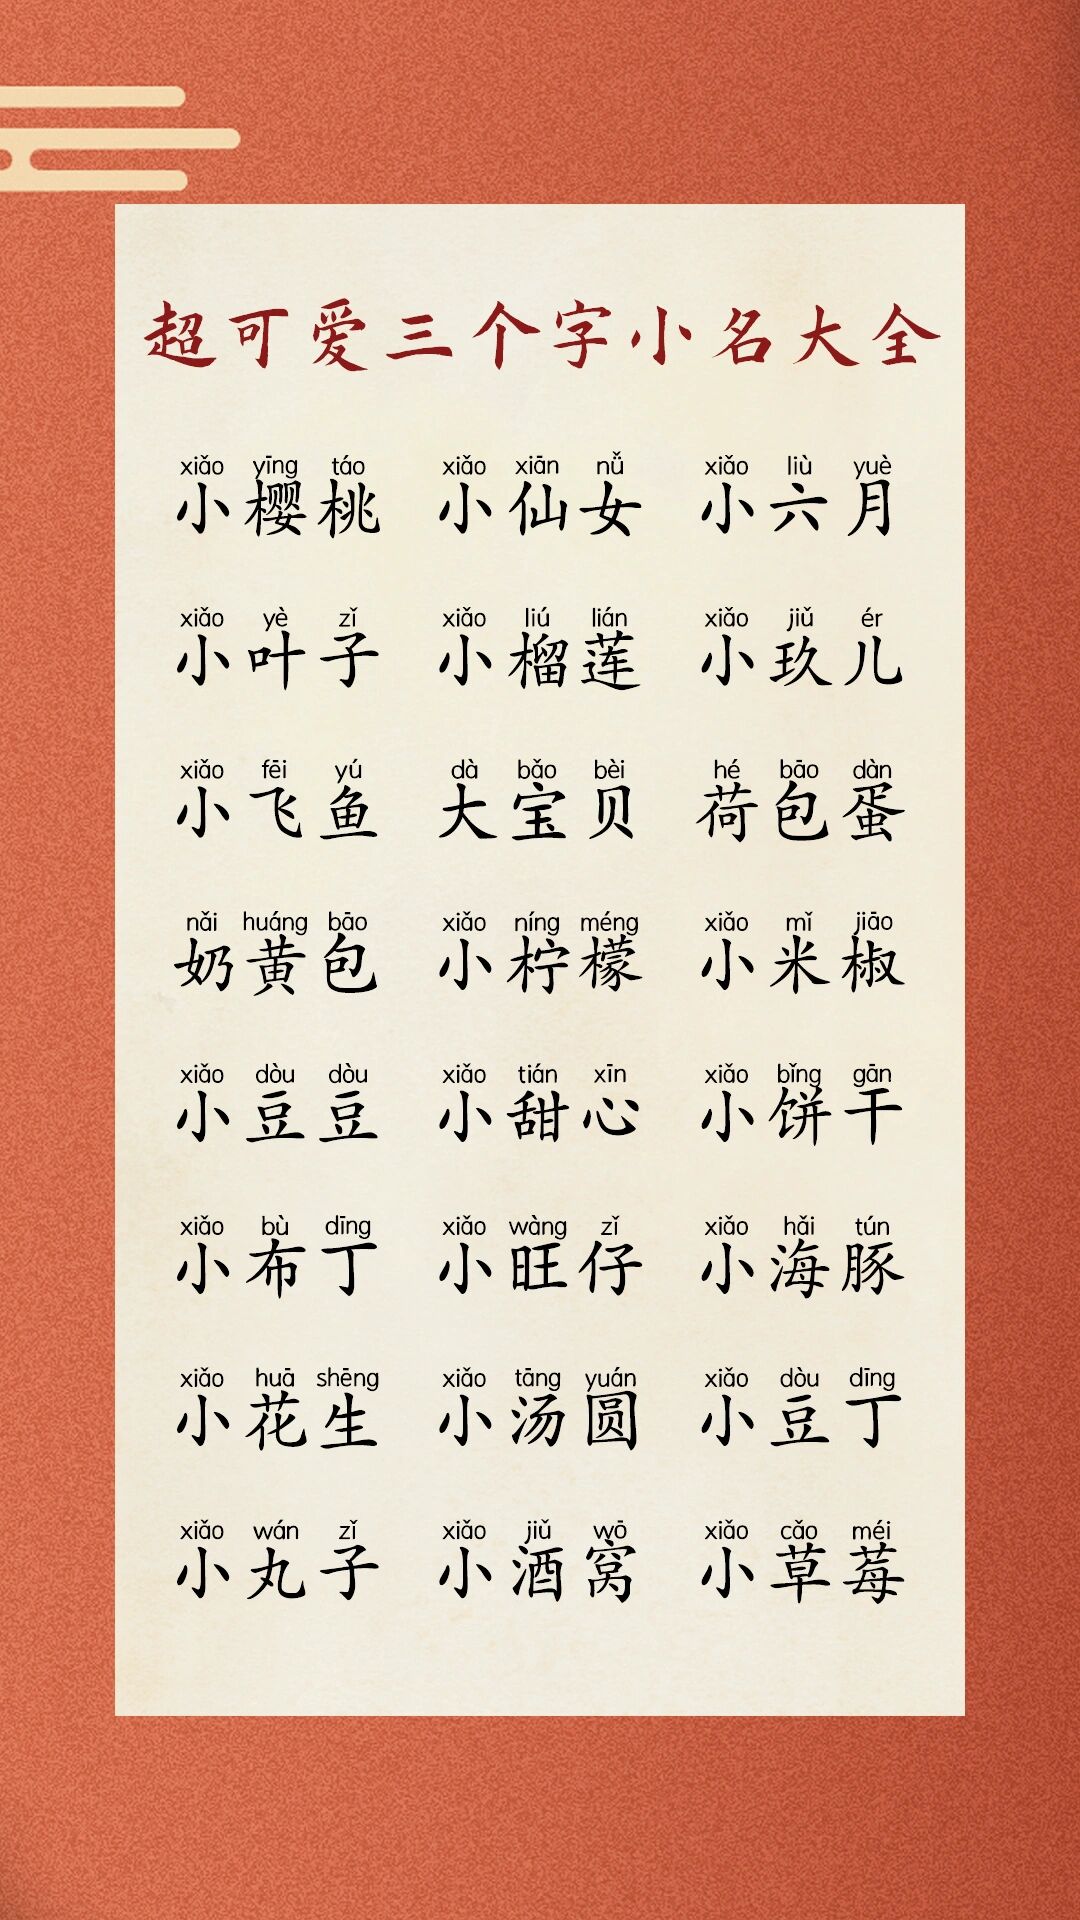 超可爱三个字小名大全
xiǎo yīng táo xiǎo xiān nǚ xiǎo liù yuè
小樱桃 小仙女 小六月
xiǎo yè zǐ xiǎo liú lián xiǎo jiǔ ér
小叶子 小榴莲 小玖儿
xiǎo fēi yú dà bǎo bèi hé bāo dàn
小飞鱼 大宝贝 荷包蛋
nǎi huáng bāo xiǎo níng méng xiǎo mǐ jiāo
奶黄包 小柠檬 小米椒
xiǎo dòu dòu xiǎo tián xīn xiǎo bǐng gān
小豆豆 小甜心 小饼干
xiǎo bù dīng xiǎo wàng zǐ xiǎo hǎi tún
小布丁 小旺仔 小海豚
xiǎo huā shēng xiǎo tāng yuán xiǎo dòu dīng
小花生 小汤圆 小豆丁
xiǎo wán zǐ xiǎo jiǔ wō xiǎo cǎo méi
小丸子 小酒窝 小草莓